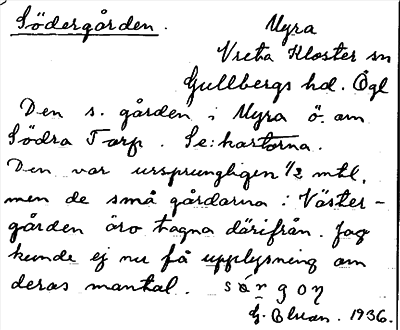 Södergården. Myra
Vreta Kloster sn
Gullbergs hd. Ögl
Den s. gården i Myra ö. om
Södra Torp. Se: kartorna.
Den var ursprungligen 1/2 mtl,
men de små gårdarna i Väster-
gården äro tagna därifrån. Jag
kunde ej nu få upplysning om
deras mantal.
G. 1936.